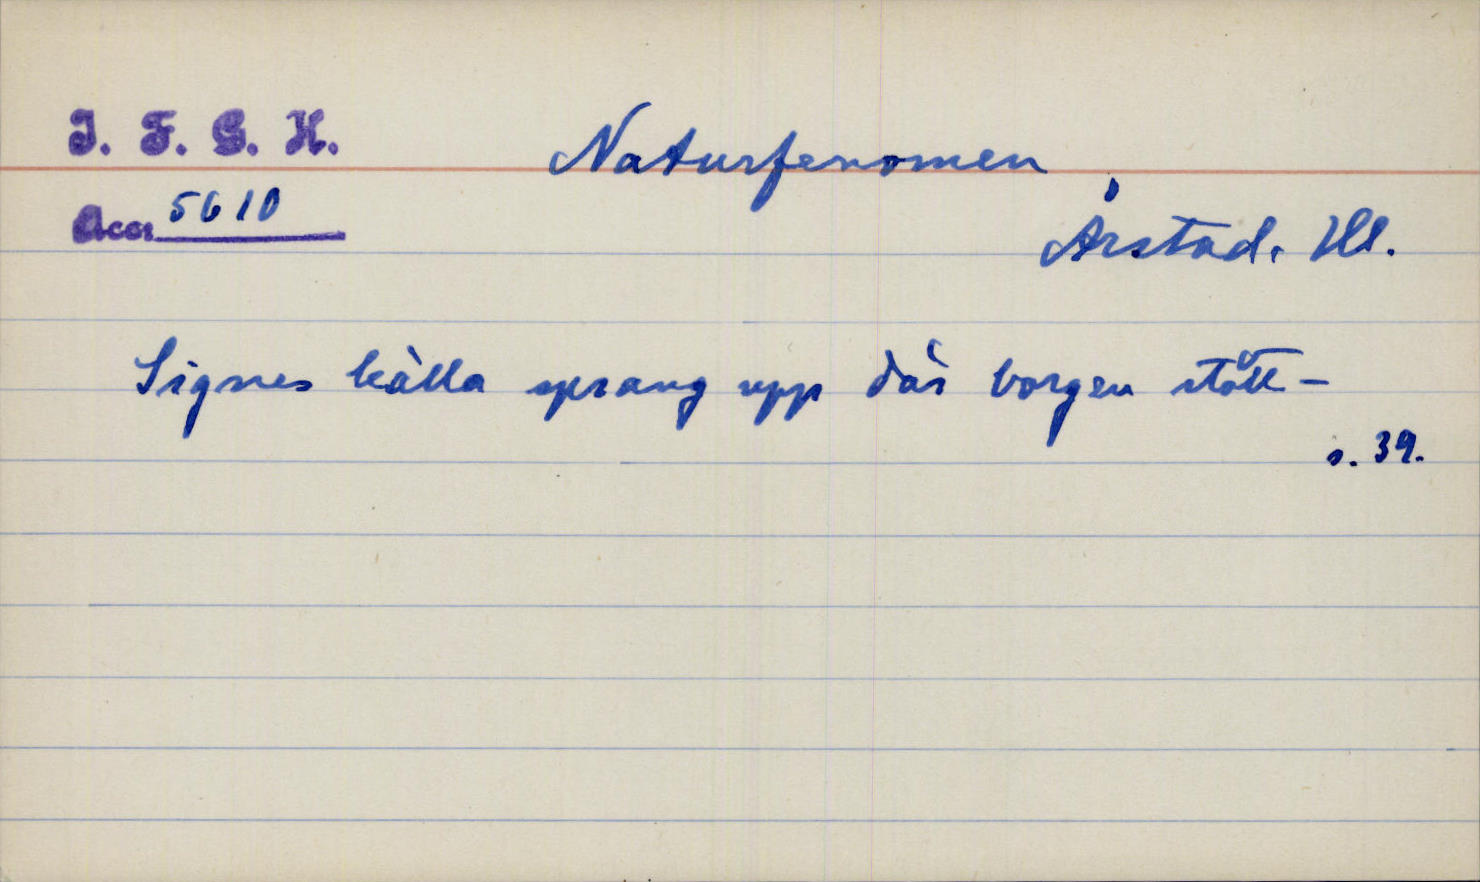 I. F. G. H.
Naturfenomen
Acc. 5610
Årstad. Hl.
Signes källa sprang upp där borgen stått –
s. 39.